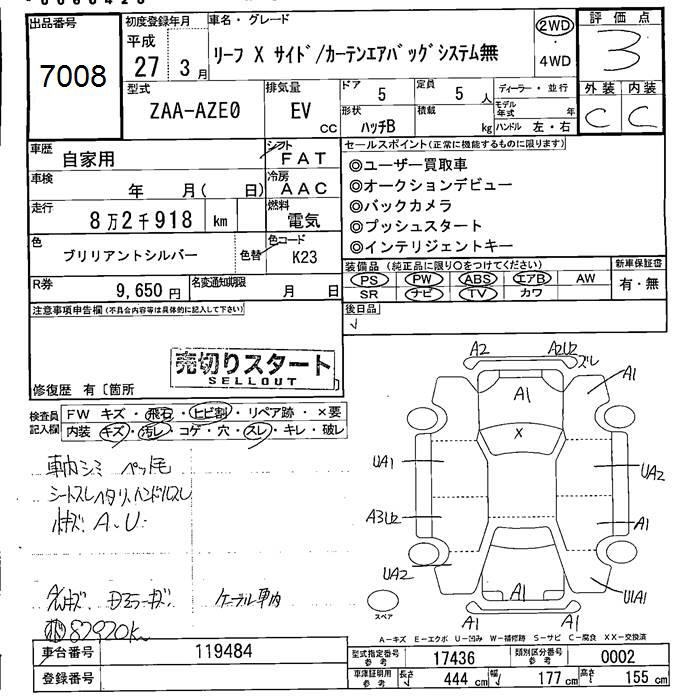 出品番号
7008
初度登録年月
平成
27 3月
車名・グレード
リーフ X サイド/カーテンエアバッグシステム無
2WD
・
4WD
評価点
3
外装 内装
C C
型式
ZAA-AZE0
排気量
EV
CC
ドア
5
定員
5 人
形状
ハッチB
積載
kg
ディーラー・並行
モデル
年式 年
ハンドル 左・右
車歴
自家用
シフト
FAT
車検
年 月( 日)
冷房
AAC
走行
8万2千918 km
燃料
電気
色
ブリリアントシルバー
色替
色コード
K23
R券
9,650円
名変通知期限
月 日
セールスポイント(正常に機能するものに限ります)
◎ユーザー買取車
◎オークションデビュー
◎バックカメラ
◎プッシュスタート
◎インテリジェントキー
装備品(純正品に限り○をつけてください)
PS PW ABS エアB AW
SR ナビ TV カワ
新車保証書
有・無
後日品
注意事項申告欄(不具合内容等は具体的に記入して下さい)
売切りスタート
SELLOUT
修復歴 有〔箇所
検査員
記入欄
FW キズ・飛石・ヒビ割・リペア跡・×要
内装 キズ・汚レ・コゲ・穴・スレ・キレ・破レ
シートスレヘタリ、ハンドルスレ
A.U.
ケーブル車内
82920k
A2
A2U2
ズレ
A1
A1
X
UA1
UA2
A3U2
A1
UA2
A1
U1A1
A1
A1
スペア
A-キズ E-エクボ U-凹み W-補修跡 S-サビ C-腐食 XX-交換済
車台番号
119484
登録番号
型式指定番号
参考
17436
類別区分番号
参考
0002
車庫証明用
参考
長さ
444 cm
幅
177 cm
高さ
155 cm